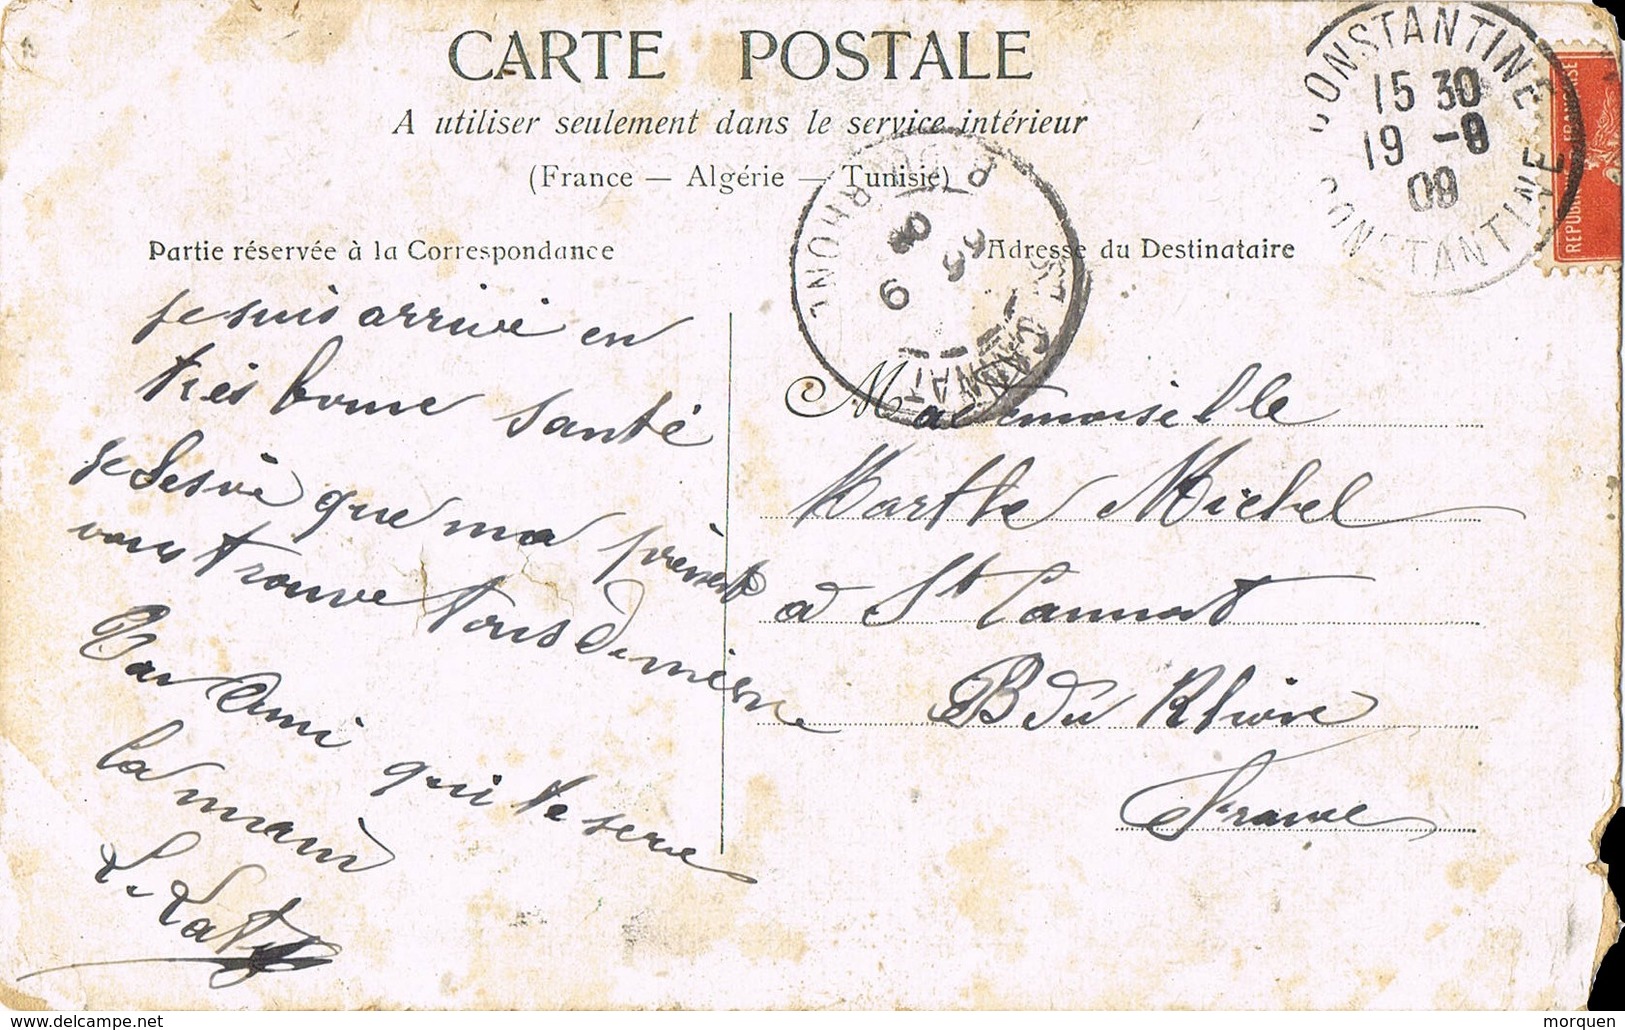 CARTE POSTALE
A utiliser seulement dans le service intérieur
(France — Algérie — Tunisie)
CONSTANTINE
15 30
19 -9
09
CONSTANTINE
REPUBLIQUE FRANÇAISE
Partie réservée à la Correspondance
Je suis arrivé en
très bonne santé
je desire que ma présente
vous trouve tous de même
Ton Ami qui te serre
la main
Adresse du Destinataire
ST CANNAT
Bches DU RHONE
Mademoiselle
Marthe Michel
a St Cannat
B du Rhône
France
www.delcampe.net
morquen